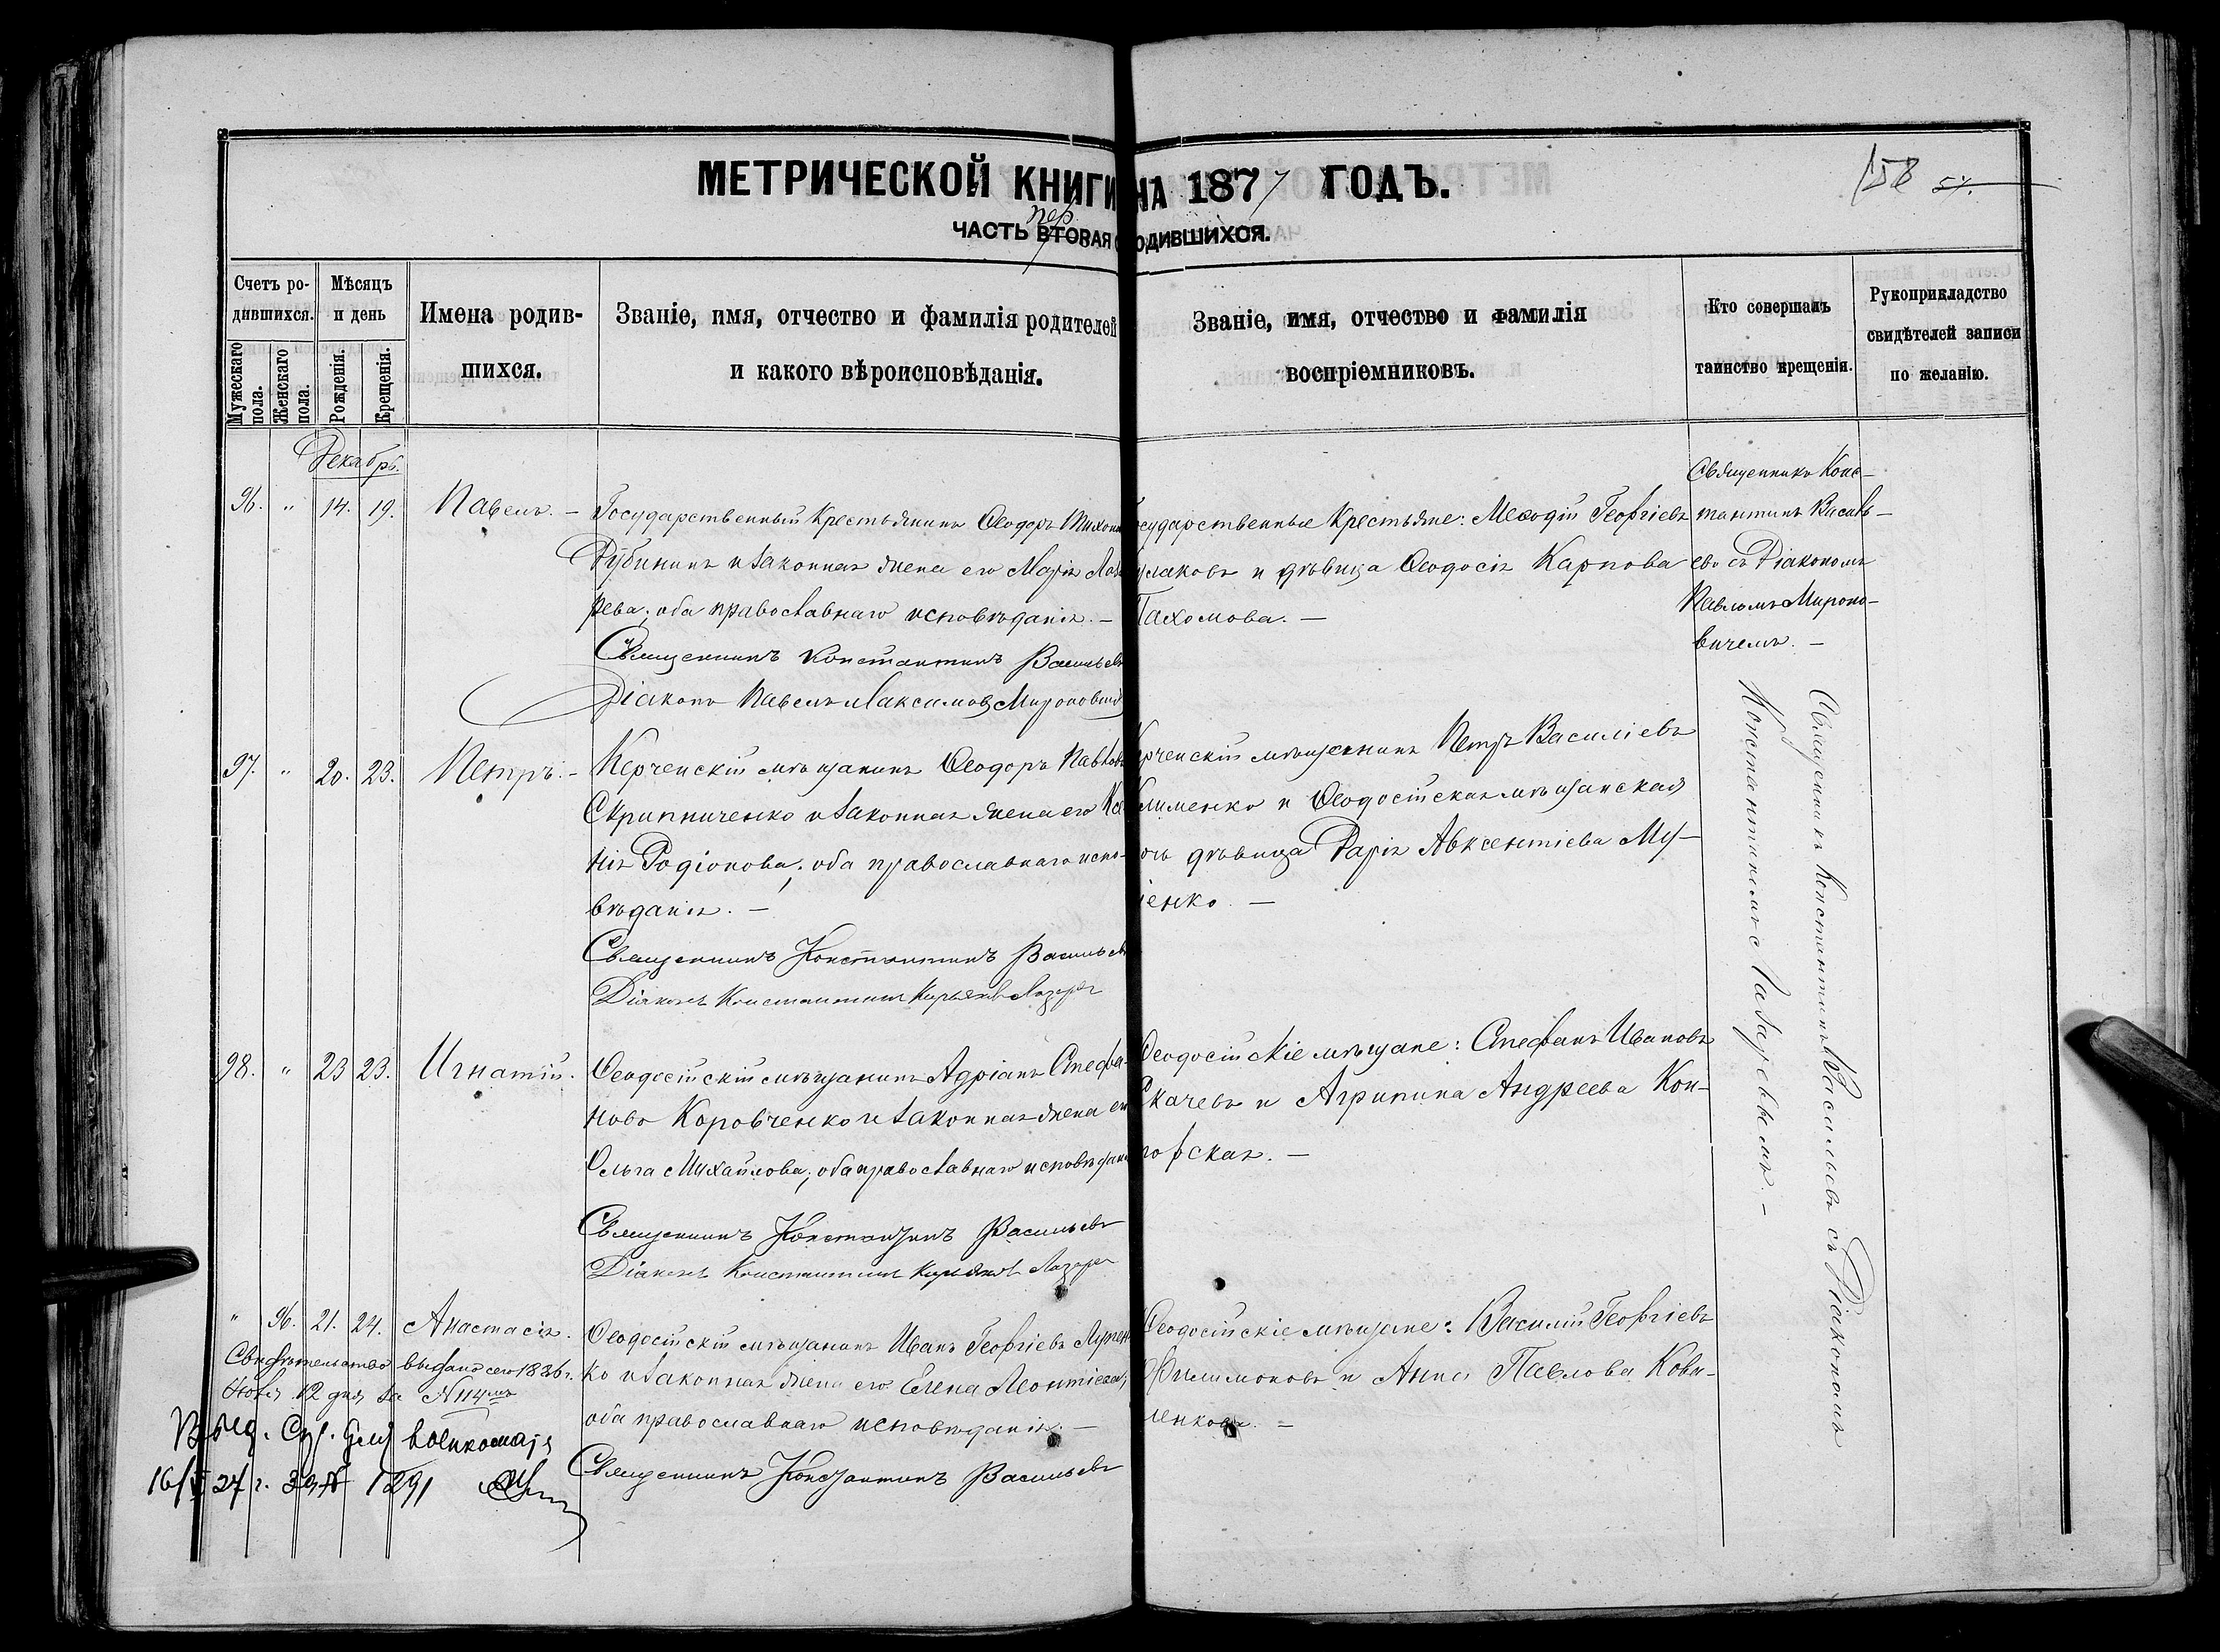 МЕТРИЧЕСКОЙ КНИГИ НА 1877 ГОДЪ.
158 57.
ЧАСТЬ ВТОРАЯ пер ОДИВШИХСЯ.
Счетъ родившихся.
Мужескаго пола.
Женскаго пола.
Мѣсяцъ и день
Рожденія.
Крещенія.
Имена родившихся.
Званіе, имя, отчество и фамилія родителей
и какого вѣроисповѣданія.
Званіе, имя, отчество и фамилія
воспріемниковъ.
Кто совершалъ
таинство крещенія.
Рукоприкладство
свидѣтелей записи
по желанію.
Декабрь.
96. " 14. 19. Павелъ. –
Государственный Крестьянинъ Ѳеодоръ Тихон
Дубининъ и законная жена его Марія Лаза
рева; оба православнаго исповѣданія. –
Священникъ Константинъ Васильевъ
Діаконъ Павелъ Максимовъ Мироновичъ
сударственные Крестьяне: Меѳодій Георгіевъ
улаковъ и дѣвица Ѳеодосія Карпова
Пахомова. –
Священникъ Конс-
тантинъ Василь-
евъ съ Діакономъ
Павломъ Мироно-
вичемъ. –
97. " 20. 23. Петръ. –
Керченскій мѣщанинъ Ѳеодоръ Павлов
Скрипниченко и законная жена его Ксе
нія Родіонова; оба православнаго испо-
вѣданія. –
Священникъ Константинъ Васильевъ
Діаконъ Константинъ Лазаре
рченскій мѣщанинъ Петръ Василіевъ
Клименко и Ѳеодосійская мѣщанская
очь дѣвица Дарія Авксентіева Му-
іенко. –
98. " 23 23. Игнатій.
Ѳеодосійскій мѣщанинъ Адріанъ Стефа-
новъ Коровченко и законная жена ег
Ольга Михайлова; оба православнаго исповѣдан
Священникъ Константинъ Васильевъ
Діаконъ Константинъ Лазаре
Ѳеодосійскіе мѣщане: Стефанъ Ивановъ
Скачевъ и Агрипина Андреева Кон-
горская. –
Священникъ Константинъ Васильевъ съ Діакономъ
Константиномъ Лазаревымъ. –
" 96. 21. 24. Анастасія.
Ѳеодосійскій мѣщанинъ Иванъ Георгіевъ
ко и законная жена его Елена Леонтіева;
оба православнаго исповѣданія. –
Священникъ Константинъ Васильевъ
Ѳеодосійскіе мѣщане: Василій Георгіевъ
Филимоновъ и Анна Павлова Кова-
ленкова. –
Свидѣтельство выдано сего 1896 г.
Ноября 12 дня за № 114
Выд. военкомата
27 г. за № 1291